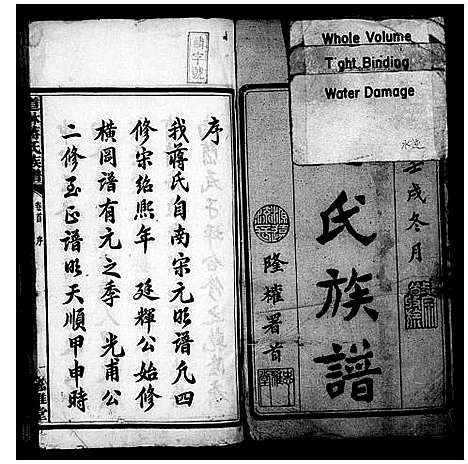 Whole Volume
Tight Binding
Water Damage
水迹
壬戌冬月
氏族譜
隆權署首
序
我蔣氏自南宋元明譜凢四
修宋紹熙年 廷輝公始修
橫岡譜有元之季 光甫公
二修至正譜明天順甲申時
蔣氏族譜
卷首 序